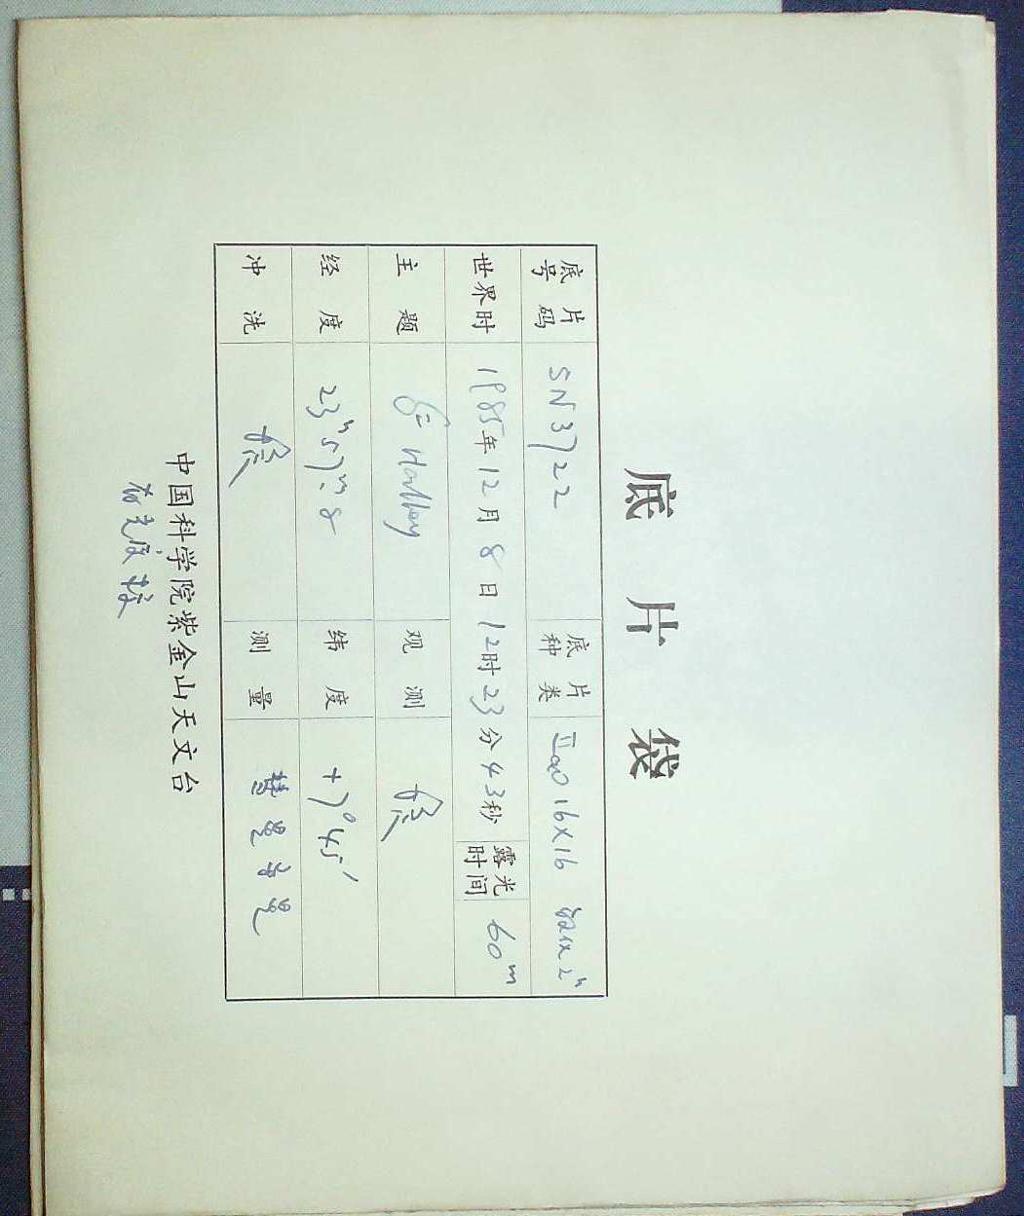 底片袋
底片号码 SN3722 底片种类 IIaO 16×16
世界时 1985年12月8日12时23分43秒 露光时间 60m
主题 Halley 观测
经度 23h57m.8 纬度 +7°45′
冲洗 测量 彗星
中国科学院紫金山天文台